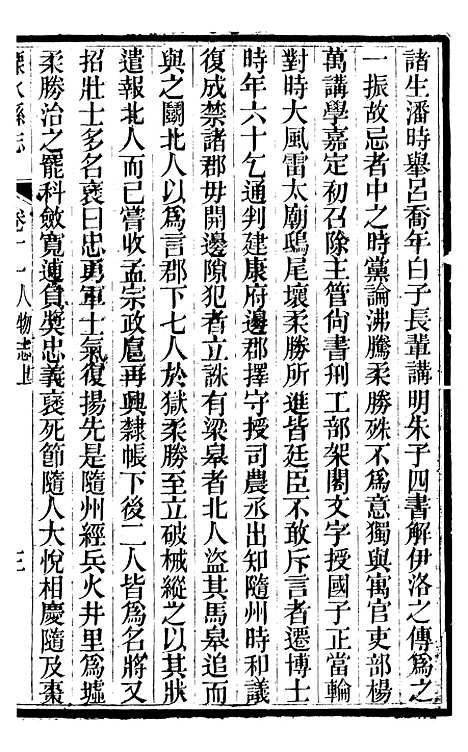 諸生潘時舉呂喬年白子長輩講明朱子四書解伊洛之傳爲之
一振故忌者中之時黨論沸騰柔勝殊不爲意獨與寓官吏部楊
萬講學嘉定初召除主管尙書刑工部架閣文字授國子正當輪
對時大風雷太廟鴟尾壞柔勝所進皆廷臣不敢斥言者遷博士
時年六十乞通判建康府邊郡擇守授司農丞出知隨州時和議
復成禁諸郡毋開邊隙犯者立誅有梁皋者北人盜其馬皋追而
與之鬭北人以爲言郡下七人於獄柔勝至立破械縱之以其狀
遣報北人而已嘗收孟宗政扈再興隸帳下後二人皆爲名將又
招壯士多名裒曰忠勇軍士氣復揚先是隨州經兵火井里爲墟
柔勝治之罷科斂寬逋負奬忠義裒死節隨人大悅相慶隨及棗
溧水縣志
卷十一人物志上
三